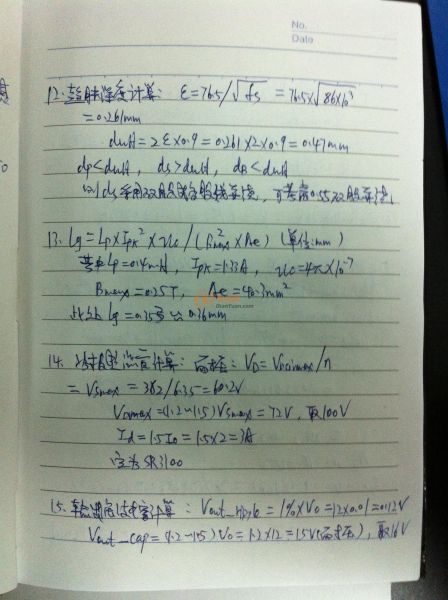 No.
Date
12. 趋肤深度计算: ε=76.5/√fs = 76.5×√86×10³
=0.261mm
dwH=2ε×0.9=0.261×2×0.9=0.47mm
dp<dwH, ds>dwH, dB<dwH
以ds采用双股或多股线, 可考虑0.55双股
13. lg=Lp×Ipk²×uc/(Bmax²×Ae) (单位:mm)
其中Lp=0.4mH, Ipk=1.33A, uc=4π×10⁻⁷
Bmax=0.25T, Ae=40.3mm²
此处lg=0.35 ≈0.36mm
14. 计算: 耐压: VD=Vdcimax/n
=Vsmax=382/6.35=60.2V
VDmax=(1.2~1.5)Vsmax=72V, 取100V
Id=1.5Io=1.5×2=3A
定为SR3100
15. 输出电容计算: Vout_ripple=1%×Vo=12×0.01=0.12V
Vout_cap=(1.2~1.5)Vo=1.2×12=15V(耐压), 取16V